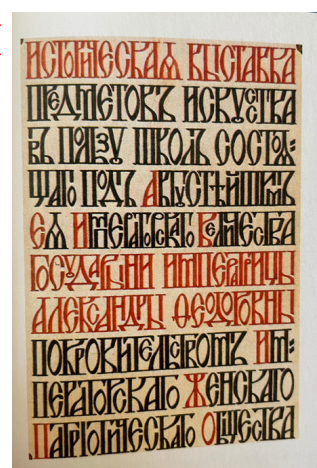 ИСТОРИЧЕСКАЯ ВЫСТАВКА
ПРЕДМЕТОВЪ ИСКУССТВА
ВЪ ПОЛЬЗУ ШКОЛЪ СОСТОЯ=
ЩАГО ПОДЪ АВГУСТѢЙШИМЪ
ЕЯ ИМПЕРАТОРСКАГО ВЕЛИЧЕСТВА
ГОСУДАРЫНИ ИМПЕРАТРИЦЫ
АЛЕКСАНДРЫ ѲЕОДОРОВНЫ
ПОКРОВИТЕЛЬСТВОМЪ ИМ=
ПЕРАТОРСКАГО ЖЕНСКАГО
ПАТРІОТИЧЕСКАГО ОБЩЕСТВА